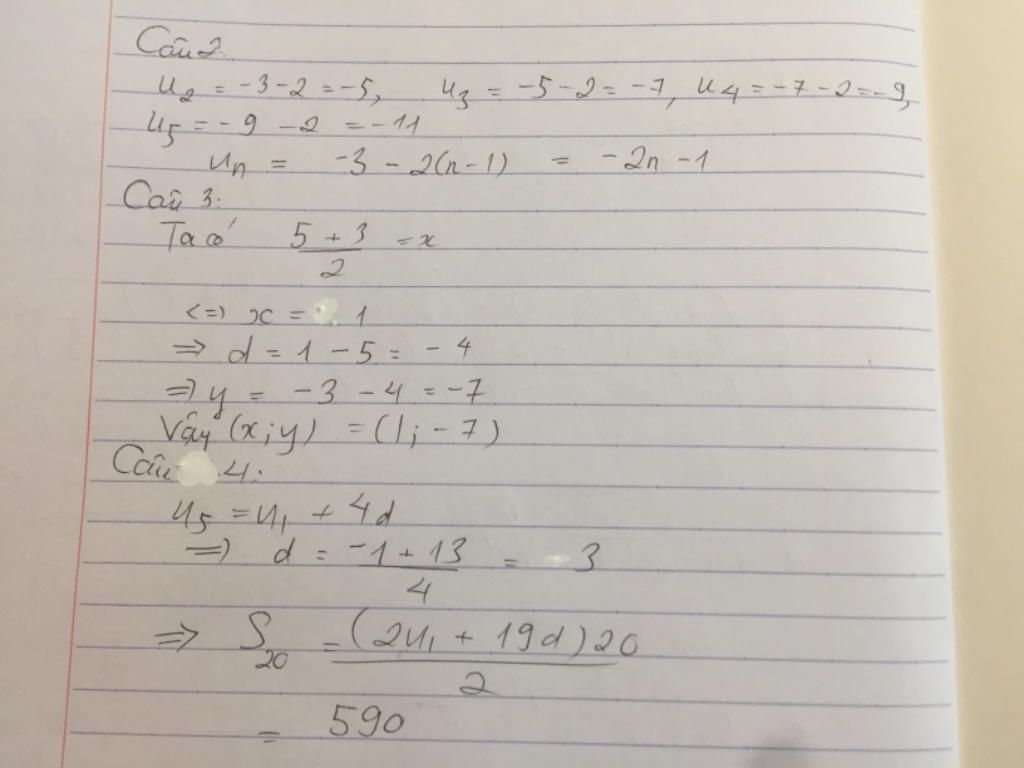 Câu 2:
u2 = -3 - 2 = -5, u3 = -5 - 2 = -7, u4 = -7 - 2 = -9,
u5 = -9 - 2 = -11
un = -3 - 2(n-1) = -2n - 1
Câu 3:
Ta có (5 + 3)/2 = x
<=> x = 1
=> d = 1 - 5 = -4
=> y = -3 - 4 = -7
Vậy (x; y) = (1; -7)
Câu 4:
u5 = u1 + 4d
=> d = (-1 + 13)/4 = 3
=> S20 = (2u1 + 19d)20/2
= 590